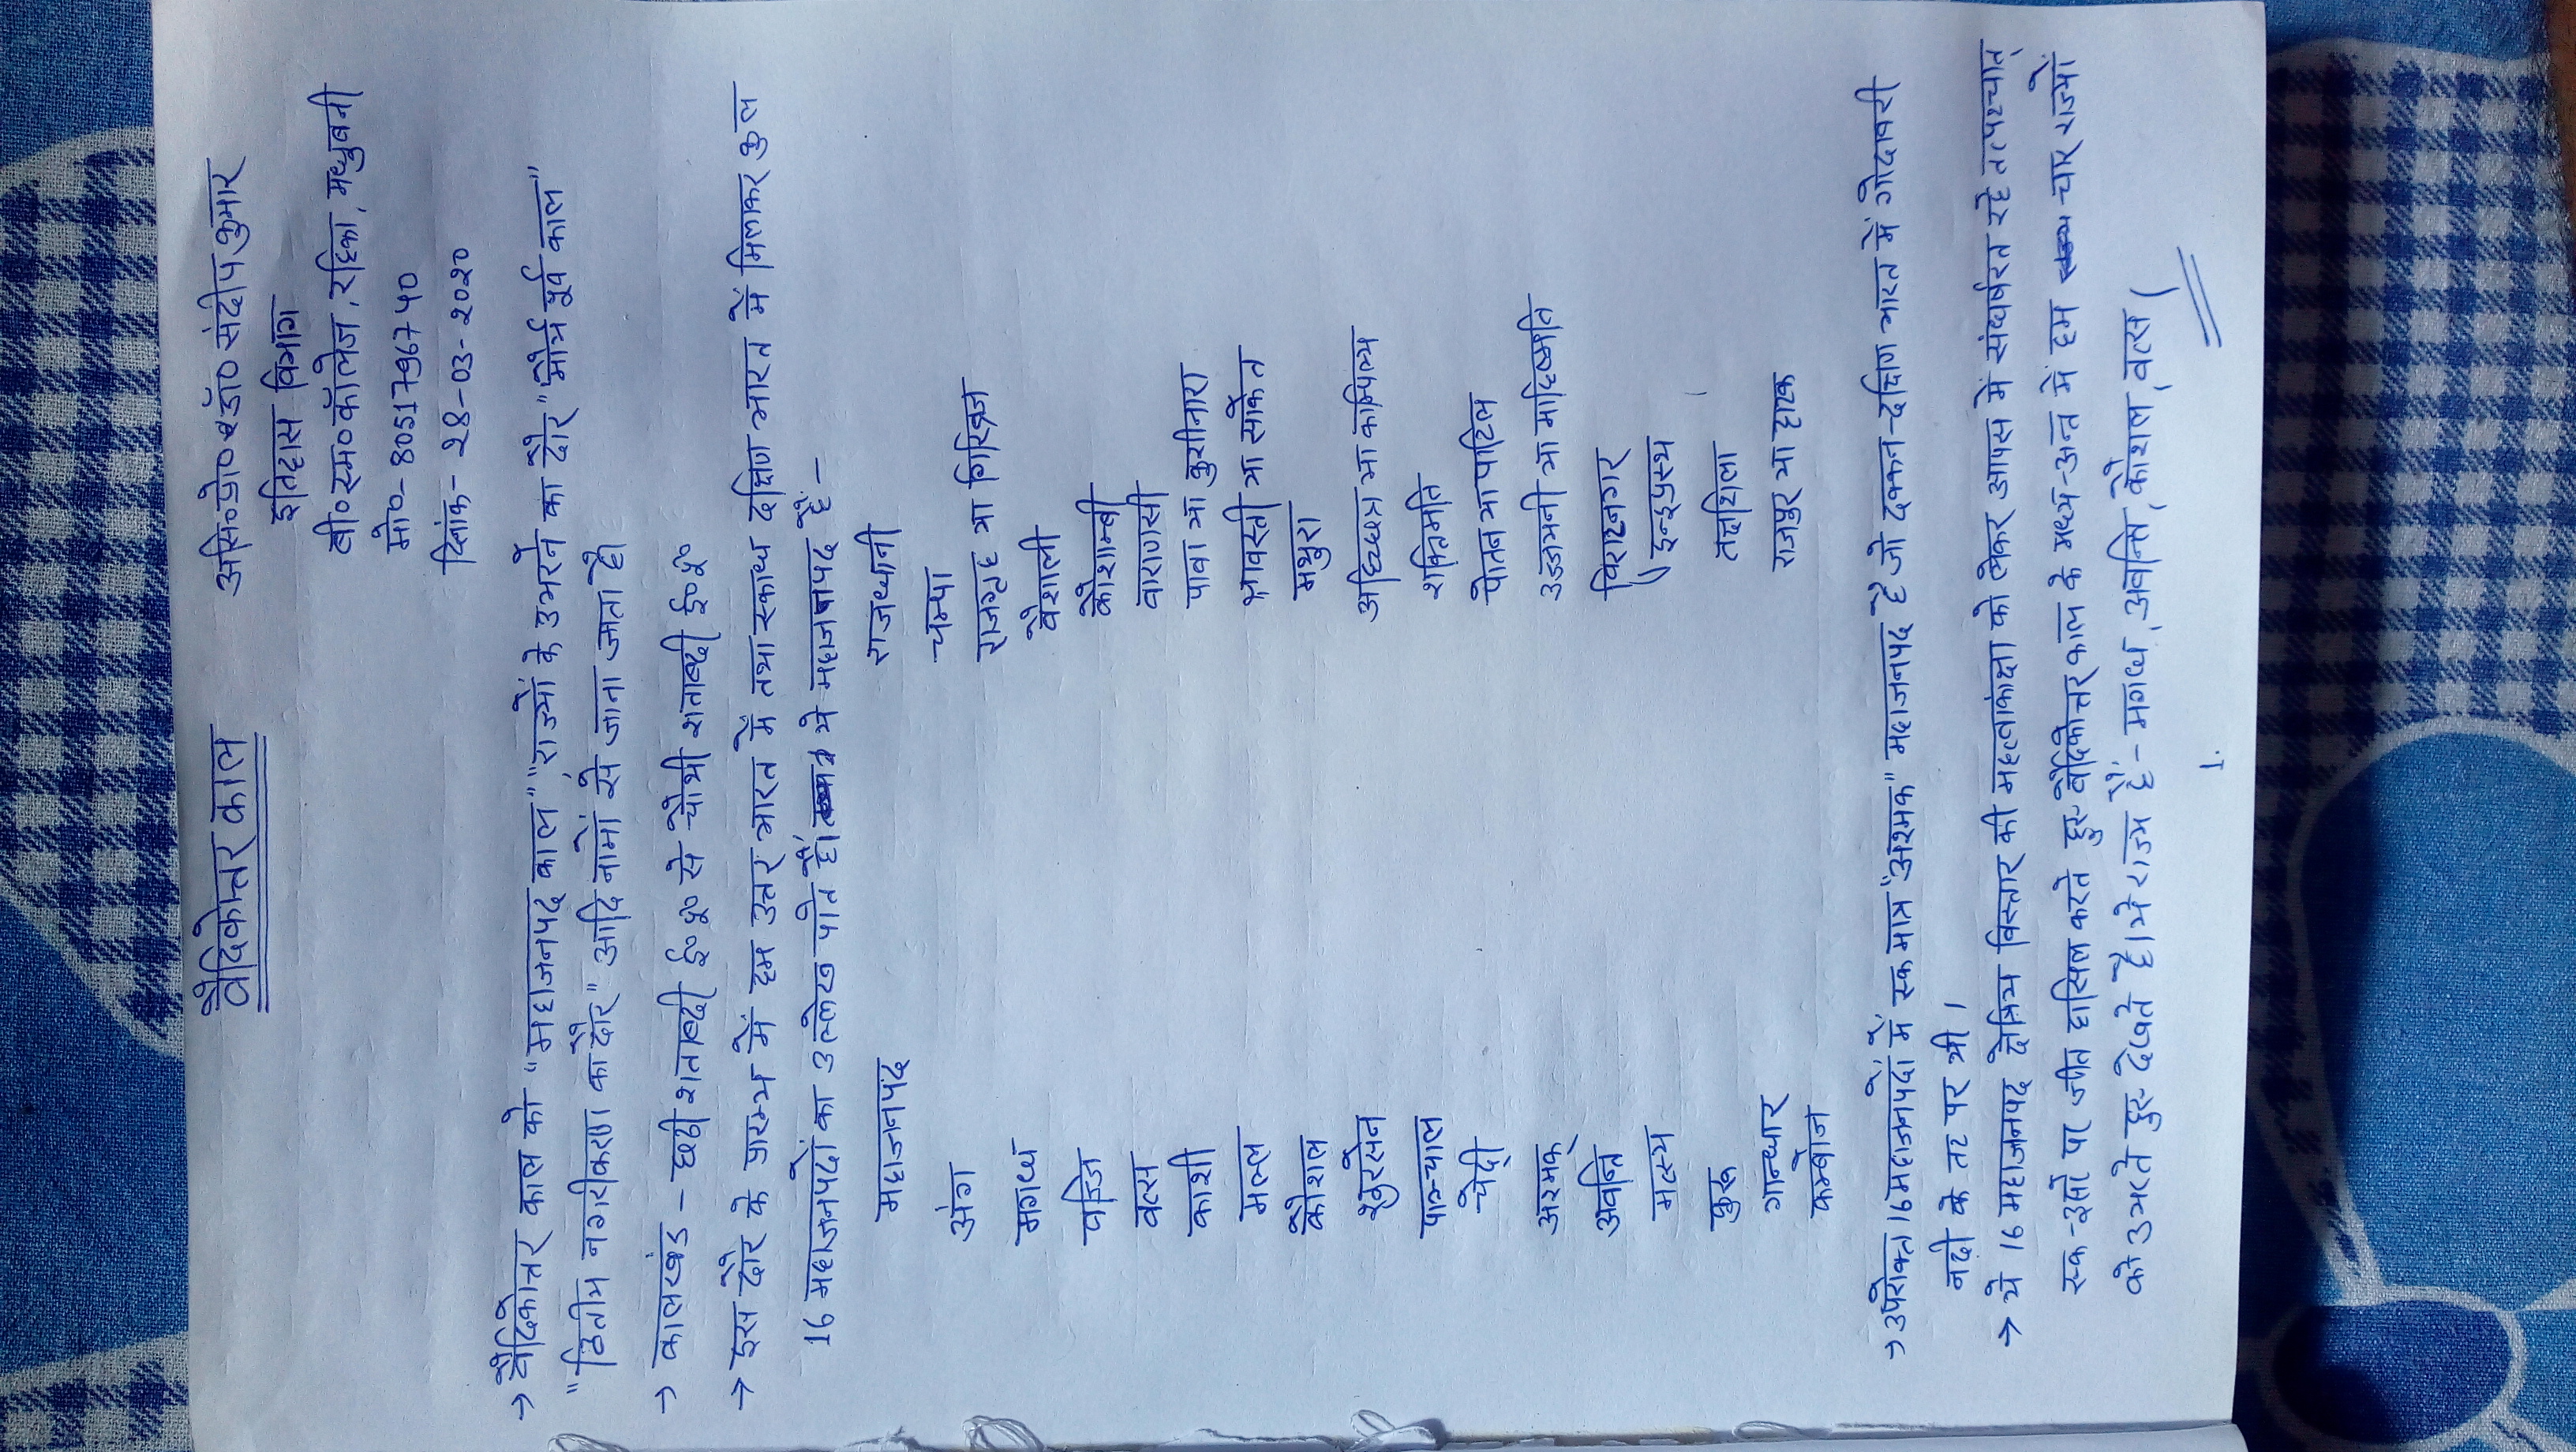 वैदिकोत्तर काल
असि०प्रो० डॉ० संदीप कुमार
इतिहास विभाग
बी०एम० कॉलेज, रहिका, मधुबनी
मो०- 8051796740
दिनांक- 28-03-2020
→ वैदिकोत्तर काल को "महाजनपद काल" "राज्यों के उभरने का दौर" "मौर्य पूर्व काल"
"द्वितीय नगरीकरण का दौर" आदि नामों से जाना जाता है।
→ कालखंड - छठी शताब्दी ई०पू० से चौथी शताब्दी ई०पू०
→ इस दौर के प्रारम्भ में हम उत्तर भारत में तथा एकाध दक्षिण भारत में मिलाकर कुल
16 महाजनपदों का उल्लेख पाते हैं। ये महाजनपद हैं -
महाजनपद राजधानी
अंग चम्पा
मगध राजगृह या गिरिव्रज
वज्जि वैशाली
वत्स कौशाम्बी
काशी वाराणसी
मल्ल पावा या कुशीनारा
कोशल श्रावस्ती या साकेत
शूरसेन मथुरा
पाञ्चाल अहिच्छत्र या काम्पिल्य
चेदी शक्तिमति
अश्मक पोतन या पोटिल
अवन्ति उज्जयनी या माहिष्मति
मत्स्य विराटनगर
कुरू इन्द्रप्रस्थ
गान्धार तक्षशिला
कम्बोज राजपुर या हाटक
→ उपरोक्त 16 महाजनपदों में एक मात्र "अश्मक" महाजनपद है जो दक्कन-दक्षिण भारत में गोदावरी
नदी के तट पर थी।
→ ये 16 महाजनपद क्षेत्रिय विस्तार की महत्वाकांक्षा को लेकर आपस में संघर्षरत रहे तत्पश्चात्
एक-दूसरे पर जीत हासिल करते हुए वैदिकोत्तर काल के मध्य-अन्त में हम चार राज्यों
को उभरते हुए देखते हैं। ये राज्य हैं- मगध, अवन्ति, कोशल, वत्स।
1.